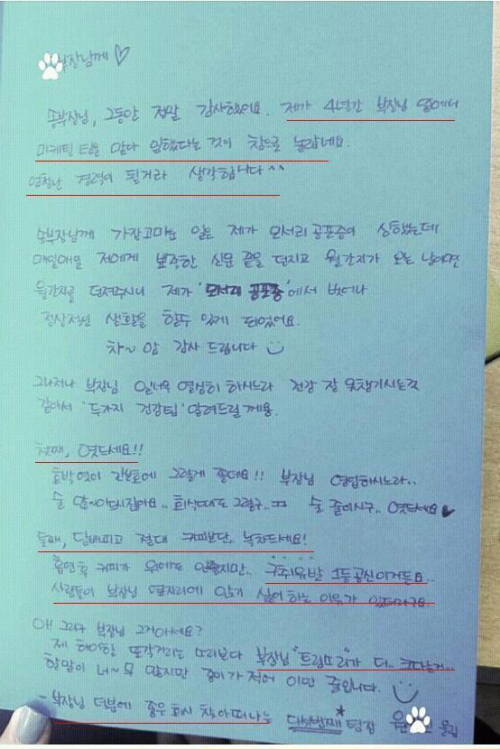 부장님께 ♡
송부장님, 그동안 정말 감사했어요. 제가 4년간 부장님 옆에서
마케팅 E를 맡다 일했다는 것이 참으로 놀랍네요.
엄청난 경력이 될거라 생각합니다^^
송부장님께 가장고마운 일은 제가 모서리 공포증이 심했었는데
매일매일 저에게 뾰족한 신문 끝을 던지고 월간지가 오는 날이면
월간지를 던져주시니 제가 '모서리 공포증'에서 벗어나
정상적인 생활을 할수 있게 되었어요.
차~암 감사 드립니다
그나저나 부장님 일너무 열심히 하시느라 건강 잘 못챙기시는것
같아서 '두가지 건강팁' 알려드릴게용.
첫째, 엿드세요!!
호박엿이 간보호에 그렇게 좋데요!! 부장님 영업하시느라..
술 많~이드시잖아요.. 회식때도 그렇구.. ㅠㅠ 술 줄이시구.. 엿드세요♥
둘째, 담배피고 절대 커피보단.. 녹차드세요!
흡연후 커피가 위에도 안좋지만.. 구취유발 1등공신이거든요..
사람들이 부장님 옆자리에 앉기 싫어 하는 이유가 있더라구요..
아! 그리고 부장님 그거아세요?
제 하이힐 또각거리는 소리보다 부장님 "트림소리"가 더.. 크답니다...
할말이 너~무 많지만 종이가 적어 이만 줄입니다.
- 부장님 덕분에 좋은 회사 찾아떠나는 다섯번째* 팀장 윤 올림